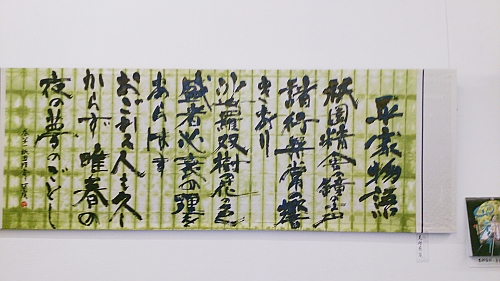 平家物語
祇園精舎の鐘の声
諸行無常の響
きあり
沙羅双樹の花の色
盛者必衰の理を
あらはす
おごれる人も久し
からず 唯春の
夜の夢のごとし